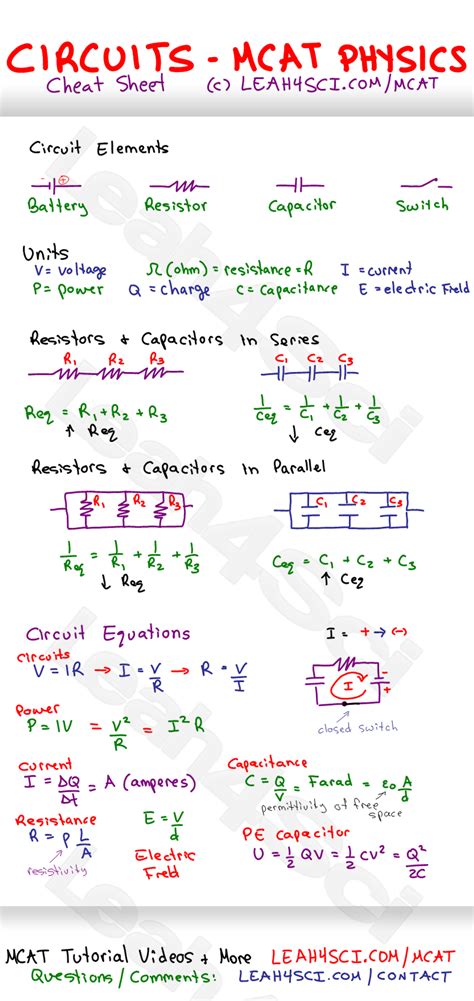 CIRCUITS - MCAT PHYSICS
Cheat Sheet (c) LEAH4SCI.COM/MCAT
Circuit Elements
Battery Resistor Capacitor Switch
Units
V = voltage Ω (ohm) = resistance = R I = current
P = power Q = charge C = capacitance E = electric Field
Resistors + Capacitors In Series
R1 R2 R3 C1 C2 C3
Req = R1 + R2 + R3 1/Ceq = 1/C1 + 1/C2 + 1/C3
↑ Req ↓ Ceq
Resistors + Capacitors In Parallel
R1 R2 R3 C1 C2 C3
1/Req = 1/R1 + 1/R2 + 1/R3 Ceq = C1 + C2 + C3
↓ Req ↑ Ceq
Circuit Equations I = + → (-)
Circuits
V = IR → I = V/R → R = V/I
I - + + -
closed switch
Power
P = IV = V²/R = I²R
Current
I = ΔQ/Δt = A (amperes)
Capacitance
C = Q/V = Farad = ε0 A/d
permittivity of free space
Resistance
R = ρ L/A
resistivity
E = V/d
Electric Field
PE capacitor
U = 1/2 QV = 1/2 CV² = Q²/2C
Leah4Sci
MCAT Tutorial Videos + More LEAH4SCI.COM/MCAT
Questions / Comments: LEAH4SCI.COM / CONTACT